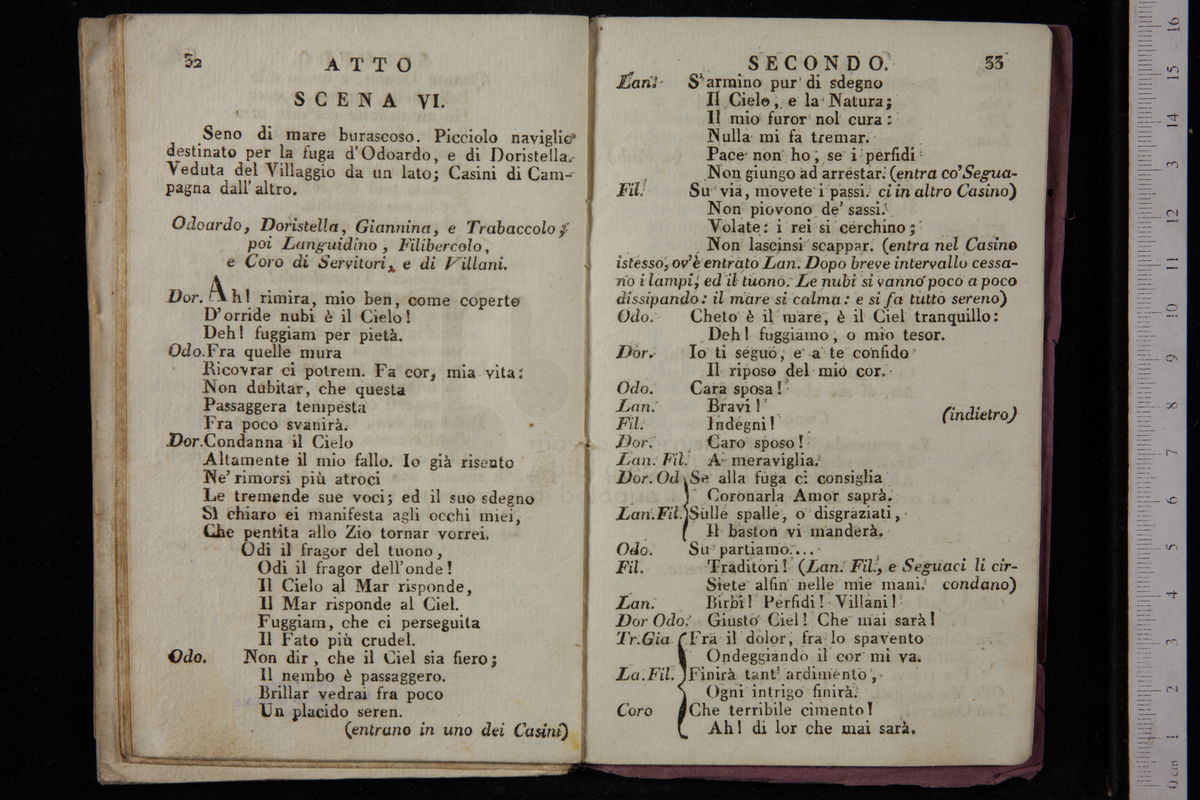 32
ATTO
SCENA VI.
Seno di mare burascoso. Picciolo naviglio
destinato per la fuga d'Odoardo, e di Doristella.
Veduta del Villaggio da un lato; Casini di Cam-
pagna dall'altro.
Odoardo, Doristella, Giannina, e Trabaccolo;
poi Languidino, Filibercolo,
e Coro di Servitori, e di Villani.
Dor. Ah! rimira, mio ben, come coperto
D'orride nubi è il Cielo!
Deh! fuggiam per pietà.
Odo. Fra quelle mura
Ricovrar ci potrem. Fa cor, mia vita:
Non dubitar, che questa
Passaggera tempesta
Fra poco svanirà.
Dor. Condanna il Cielo
Altamente il mio fallo. Io già risento
Ne' rimorsi più atroci
Le tremende sue voci; ed il suo sdegno
Sì chiaro ei manifesta agli occhi miei,
Che pentita allo Zio tornar vorrei.
Odi il fragor del tuono,
Odi il fragor dell'onde!
Il Cielo al Mar risponde,
Il Mar risponde al Ciel.
Fuggiam, che ci perseguita
Il Fato più crudel.
Odo. Non dir, che il Ciel sia fiero;
Il nembo è passaggero.
Brillar vedrai fra poco
Un placido seren.
(entrano in uno dei Casini)
SECONDO. 33
Lan. S'armino pur di sdegno
Il Cielo, e la Natura;
Il mio furor nol cura:
Nulla mi fa tremar.
Pace non ho, se i perfidi
Non giungo ad arrestar. (entra co' Segua-
Fil. Su via, movete i passi. ci in altro Casino)
Non piovono de' sassi.
Volate: i rei si cerchino;
Non lascinsi scappar. (entra nel Casino
istesso, ov'è entrato Lan. Dopo breve intervallo cessa-
no i lampi, ed il tuono. Le nubi si vanno poco a poco
dissipando: il mare si calma: e si fa tutto sereno)
Odo. Cheto è il mare, è il Ciel tranquillo:
Deh! fuggiamo, o mio tesor.
Dor. Io ti seguo, e a te confido
Il riposo del mio cor.
Odo. Cara sposa!
Lan. Bravi!
Fil. Indegni! (indietro)
Dor. Caro sposo!
Lan. Fil. A meraviglia.
Dor. Od. Se alla fuga ci consiglia
Coronarla Amor saprà.
Lan. Fil. Sulle spalle, o disgraziati,
Il baston vi manderà.
Odo. Su partiamo....
Fil. Traditori! (Lan. Fil., e Seguaci li cir-
Siete alfin nelle mie mani. condano)
Lan. Birbi! Perfidi! Villani!
Dor Odo. Giusto Ciel! Che mai sarà!
Tr. Gia Fra il dolor, fra lo spavento
Ondeggiando il cor mi va.
La. Fil. Finirà tant' ardimento,
Ogni intrigo finirà.
Coro Che terribile cimento!
Ah! di lor che mai sarà.
16
15
14
13
12
11
10
9
8
7
6
5
4
3
2
1
0 cm